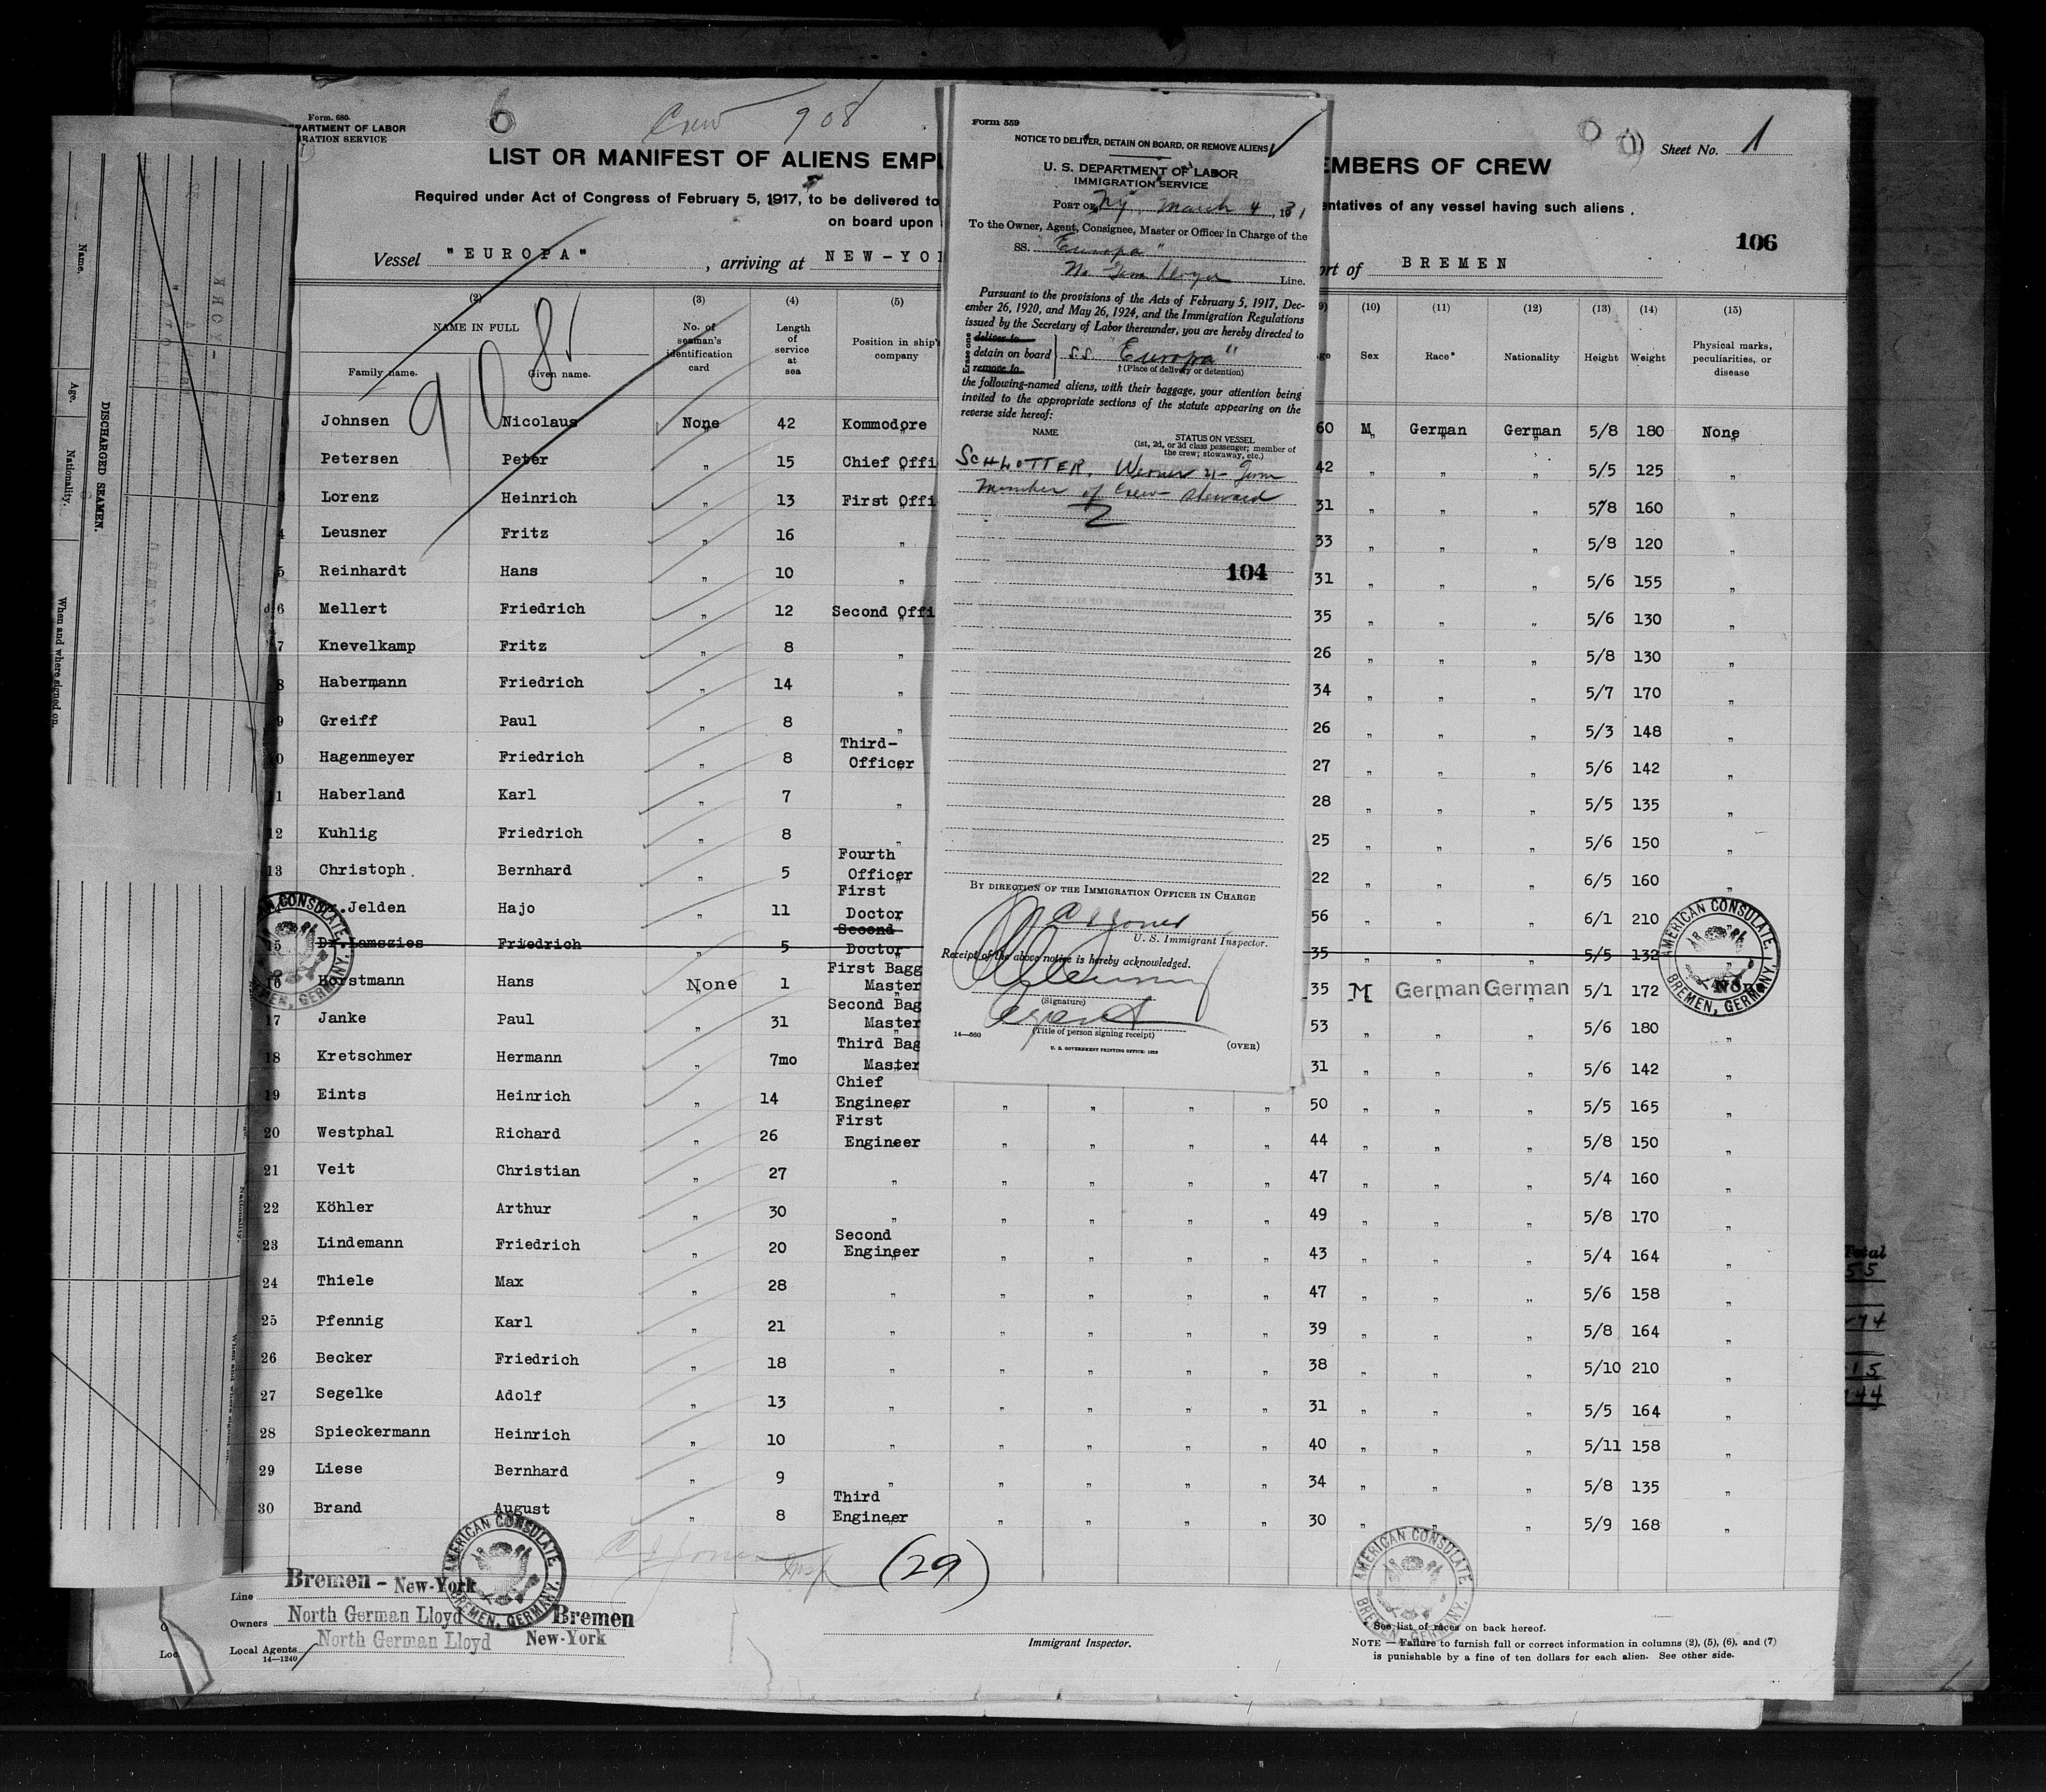 Form. 680.
PARTMENT OF LABOR
RATION SERVICE
6
Crew 908
LIST OR MANIFEST OF ALIENS EMPL
EMBERS OF CREW
Sheet No. 1
Required under Act of Congress of February 5, 1917, to be delivered to
entatives of any vessel having such aliens.
on board upon
106
Vessel "EUROPA", arriving at NEW-YOR
ort of BREMEN
908
(2) (3) (4) (5) 9) (10) (11) (12) (13) (14) (15)
NAME IN FULL
Family name. Given name.
No. of seaman's identification card
Length of service at sea
Position in ship's company
ge
Sex
Race*
Nationality
Height
Weight
Physical marks, peculiarities, or disease
Johnsen Nicolaus None 42 Kommodore 60 M German German 5/8 180 None
Petersen Peter " 15 Chief Offi 42 " " " 5/5 125 "
3 Lorenz Heinrich " 13 First Offi 31 " " " 5/8 160 "
4 Leusner Fritz " 16 " 33 " " " 5/8 120 "
5 Reinhardt Hans " 10 " 31 " " " 5/6 155 "
6 Mellert Friedrich " 12 Second Offi 35 " " " 5/6 130 "
7 Knevelkamp Fritz " 8 " 26 " " " 5/8 130 "
8 Habermann Friedrich " 14 " 34 " " " 5/7 170 "
9 Greiff Paul " 8 " 26 " " " 5/3 148 "
10 Hagenmeyer Friedrich " 8 Third-Officer 27 " " " 5/6 142 "
11 Haberland Karl " 7 " 28 " " " 5/5 135 "
12 Kuhlig Friedrich " 8 " 25 " " " 5/6 150 "
13 Christoph Bernhard " 5 Fourth Officer 22 " " " 6/5 160 "
.Jelden Hajo " 11 First Doctor 56 " " " 6/1 210
15 Dr.Lamszies Friedrich 5 Second Doctor 35 " " " 5/5 132 "
16 Horstmann Hans None 1 First Bagg Master 35 M German German 5/1 172 None
17 Janke Paul " 31 Second Bag Master 53 " " " 5/6 180 "
18 Kretschmer Hermann " 7mo Third Bag Master 31 " " " 5/6 142 "
19 Eints Heinrich " 14 Chief Engineer " " " " 50 " " " 5/5 165 "
20 Westphal Richard " 26 First Engineer " " " " 44 " " " 5/8 150 "
21 Veit Christian " 27 " " " " " 47 " " " 5/4 160 "
22 Köhler Arthur " 30 " " " " " 49 " " " 5/8 170 "
23 Lindemann Friedrich " 20 Second Engineer " " " " 43 " " " 5/4 164 "
24 Thiele Max " 28 " " " " " 47 " " " 5/6 158 "
25 Pfennig Karl " 21 " " " " " 39 " " " 5/8 164 "
26 Becker Friedrich " 18 " " " " " 38 " " " 5/10 210 "
27 Segelke Adolf " 13 " " " " " 31 " " " 5/5 164 "
28 Spieckermann Heinrich " 10 " " " " " 40 " " " 5/11 158 "
29 Liese Bernhard " 9 " " " " " 34 " " " 5/8 135 "
30 Brand August " 8 Third Engineer " " " " 30 " " " 5/9 168 "
C J Jones Insp (29)
Line Bremen - New-York
Owners North German Lloyd Bremen
Local Agents North German Lloyd New-York
14—1240
Immigrant Inspector.
See list of races on back hereof.
NOTE — Failure to furnish full or correct information in columns (2), (5), (6), and (7)
is punishable by a fine of ten dollars for each alien. See other side.
AMERICAN CONSULATE
BREMEN, GERMANY.
AMERICAN CONSULATE,
BREMEN, GERMANY.
AMERICAN CONSULATE,
BREMEN, GERMANY.
AMERICAN CONSULATE,
BREMEN, GERMANY.
Form 559
NOTICE TO DELIVER, DETAIN ON BOARD, OR REMOVE ALIENS
U. S. DEPARTMENT OF LABOR
IMMIGRATION SERVICE
PORT OF NY, March 4, 1931
To the Owner, Agent, Consignee, Master or Officer in Charge of the
SS. "Europa"
No Germ Lloyd Line.
Pursuant to the provisions of the Acts of February 5, 1917, Dec-
ember 26, 1920, and May 26, 1924, and the Immigration Regulations
issued by the Secretary of Labor thereunder, you are hereby directed to
Erase one
deliver to
detain on board S.S. "Europa"
remove to
† (Place of delivery or detention)
the following-named aliens, with their baggage, your attention being
invited to the appropriate sections of the statute appearing on the
reverse side hereof:
NAME
STATUS ON VESSEL
(1st, 2d, or 3d class passenger; member of
the crew; stowaway, etc.)
SCHLOTTER, Werner 21- Germ
Member of Crew - steward
104
BY DIRECTION OF THE IMMIGRATION OFFICER IN CHARGE
C J Jones
U. S. Immigrant Inspector.
Receipt of the above notice is hereby acknowledged.
(Signature)
(Title of person signing receipt)
14—660
(OVER)
U. S. GOVERNMENT PRINTING OFFICE: 1929
Name.
Age.
Nationality.
When and where signed on.
DISCHARGED SEAMEN.
Nationality.
When and where signed on.
Total
55
15
44